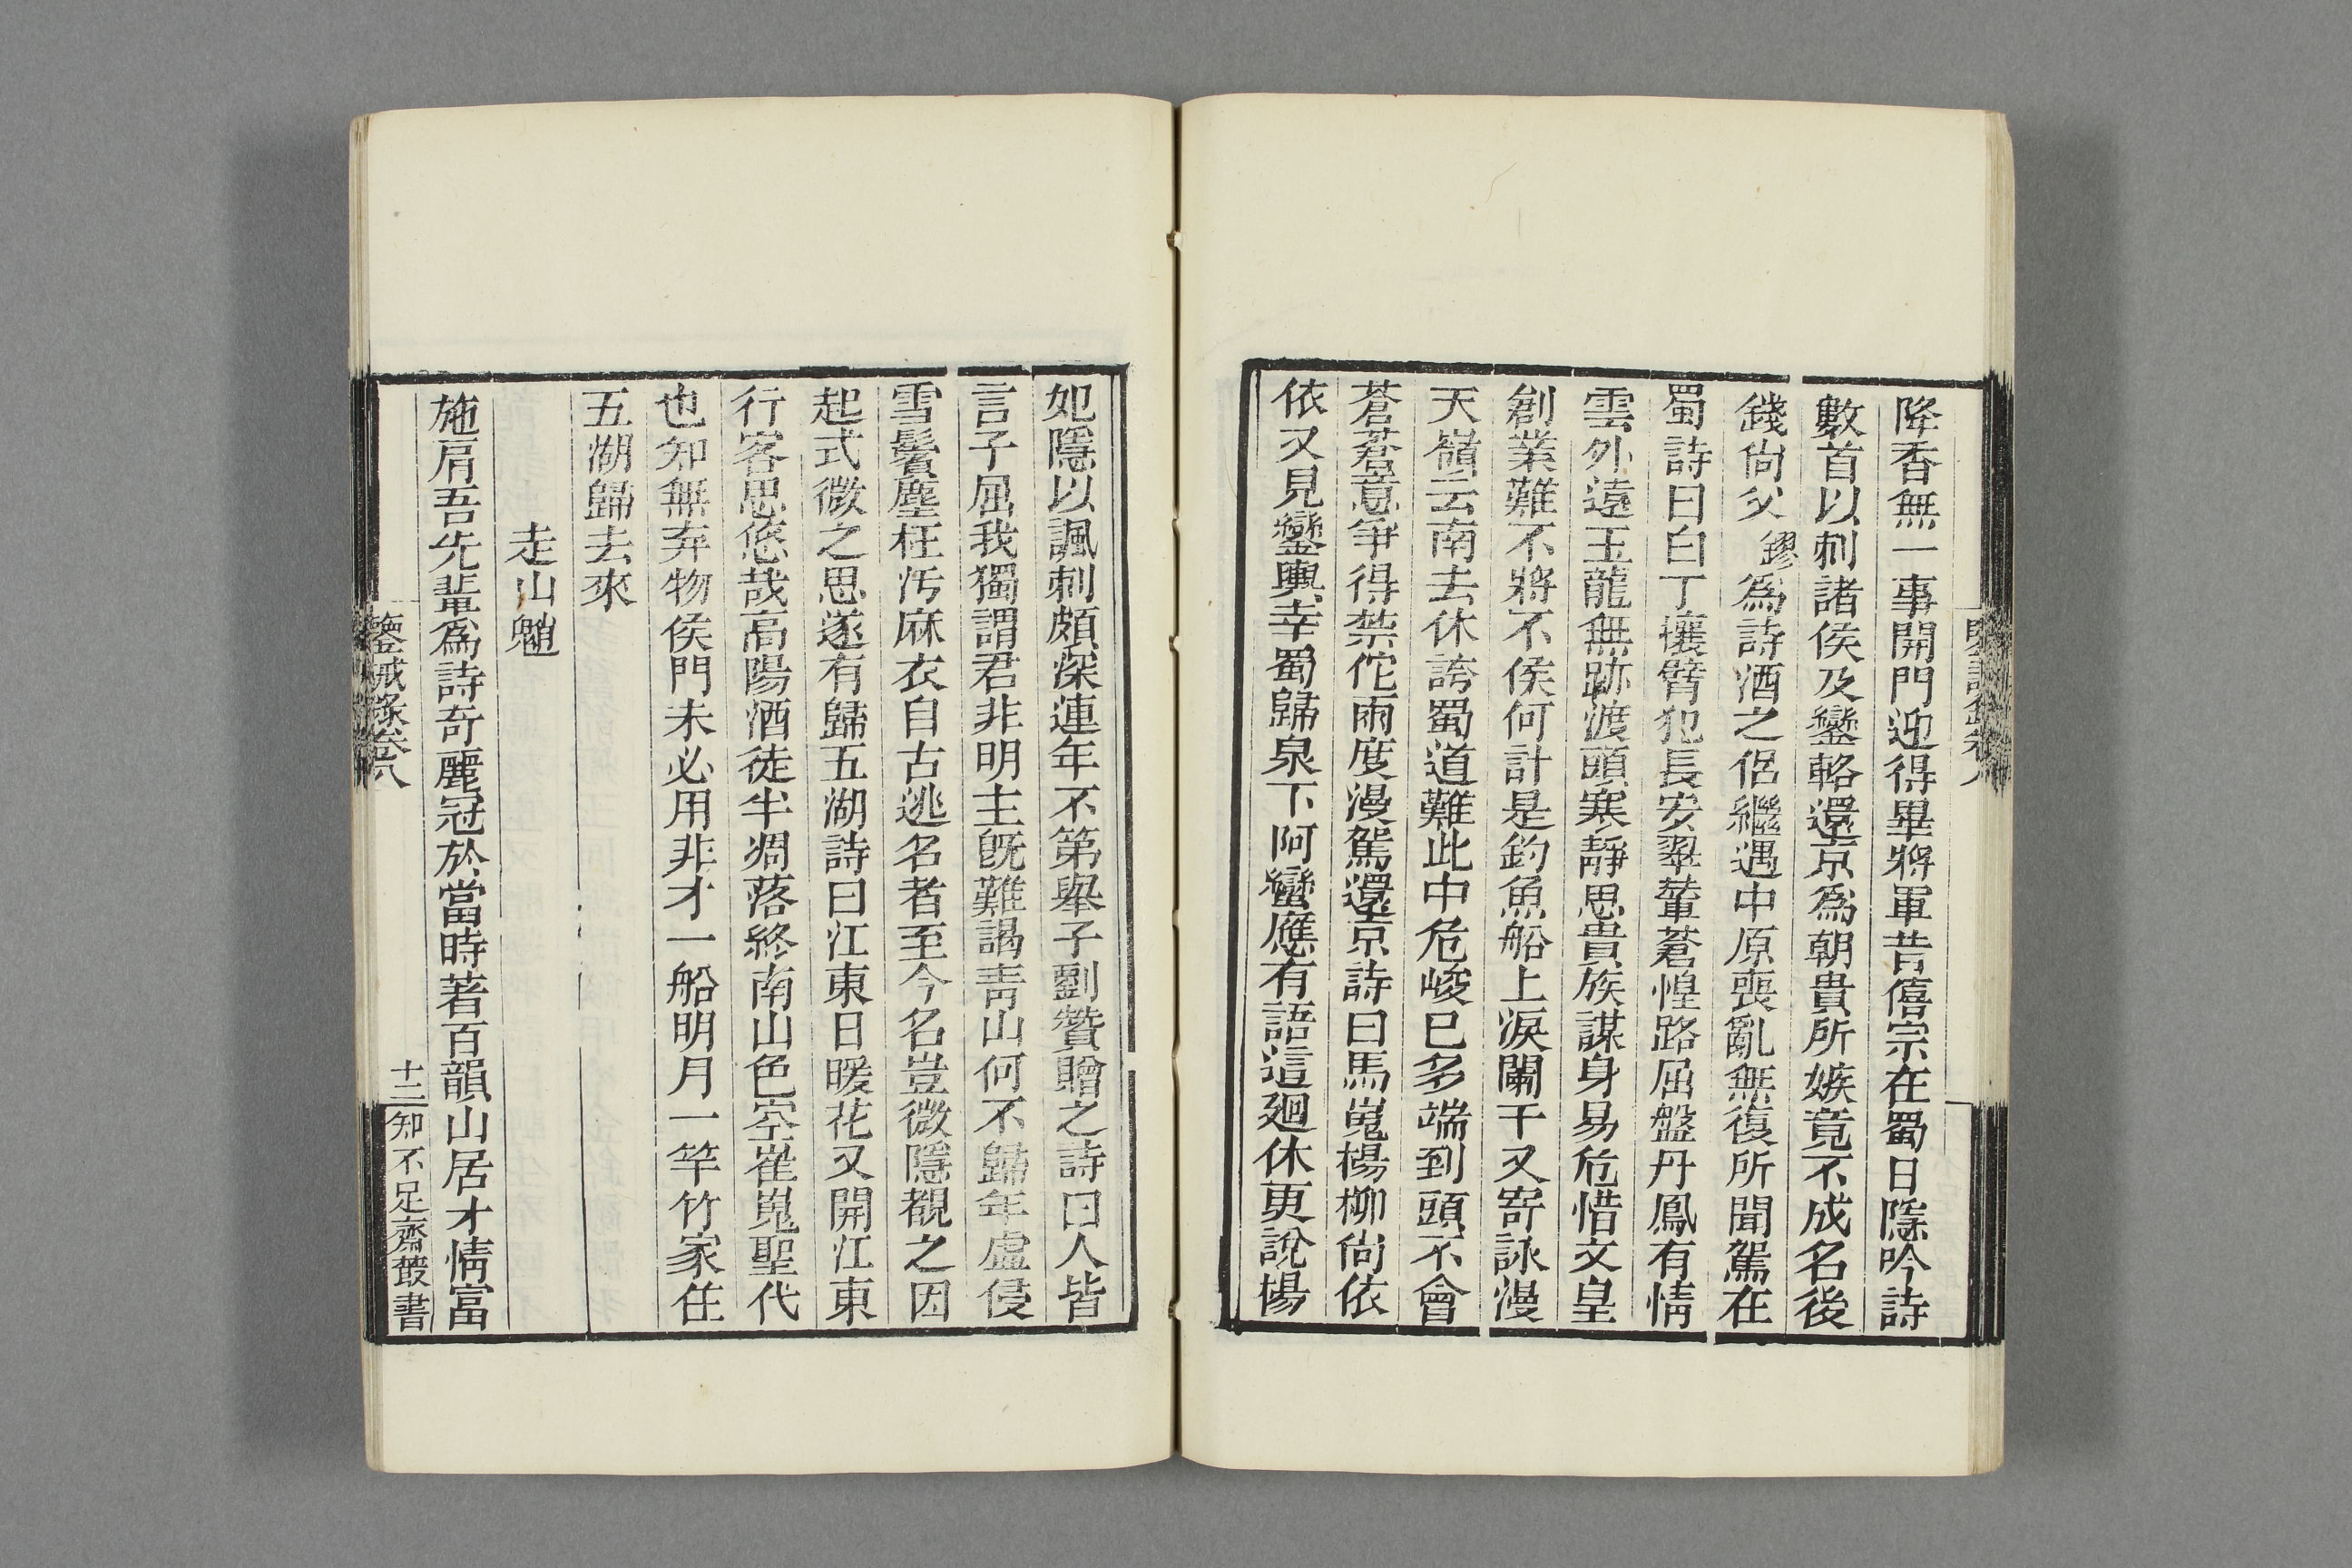 降香無一事開門迎得畢將軍昔僖宗在蜀日隱吟詩
數首以刺諸侯及鑾輅還京為朝貴所嫉竟不成名後
錢尚父鏐為詩酒之侶繼遇中原喪亂無復所聞駕在
蜀詩曰白丁攘臂犯長安翠輦蒼惶路屈盤丹鳳有情
雲外遠玉龍無跡渡頭寒靜思貴族謀身易危惜文皇
創業難不將不侯何計是釣魚船上淚闌干又寄詠漫
天嶺云南去休誇蜀道難此中危峻已多端到頭不會
蒼蒼意爭得禁佗兩度漫駕還京詩曰馬嵬楊柳尚依
依又見鑾輿幸蜀歸泉下阿蠻應有語這廻休更說楊
妃隱以諷刺頗深連年不第舉子劉贊贈之詩曰人皆
言子屈我獨謂君非明主既難謁青山何不歸年虛侵
雪鬢塵枉汚麻衣自古逃名者至今名豈微隱覩之因
起式微之思遂有歸五湖詩曰江東日暖花又開江東
行客思悠哉高陽酒徒半凋落終南山色空崔嵬聖代
也知無弃物侯門未必用非才一船明月一竿竹家住
五湖歸去來
走山魈
施肩吾先輩為詩奇麗冠於當時著百韻山居才情富
鑒戒錄卷八
十二
知不足齋叢書